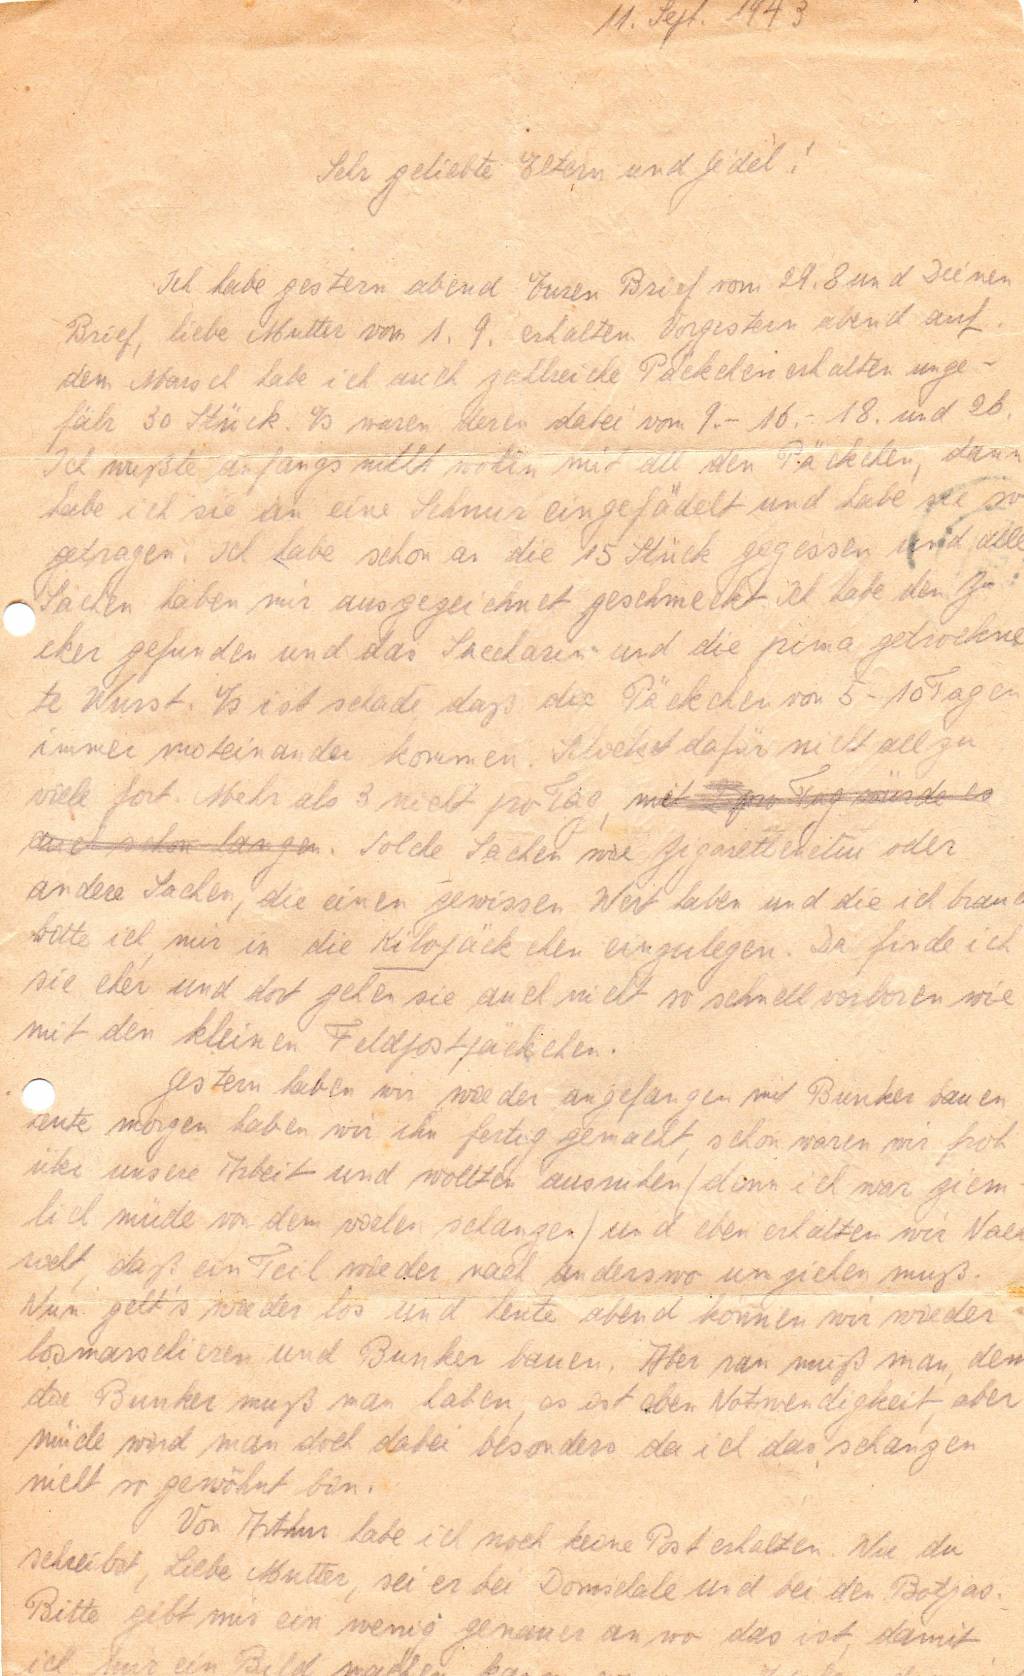 11. Sept. 1943
Sehr geliebte Eltern und Fidel!
Ich habe gestern abend Euren Brief vom 29.8 und Deinen
Brief, liebe Mutter vom 1. 9. erhalten. Vorgestern abend auf
dem Marsch habe ich auch zahlreiche Päckchen erhalten unge-
fähr 30 Stück. Es waren deren dabei vom 9.- 16.- 18. und 26.
Ich wußte anfangs nicht wohin mit all den Päckchen, dann
habe ich sie an eine Schnur eingefädelt und habe sie so
getragen. Ich habe schon an die 15 Stück gegessen und alle
Sachen haben mir ausgezeichnet geschmeckt. Ich habe den Zu
cker gefunden und das Saccharin und die prima getrockne
te Wurst. Es ist schade daß die Päckchen von 5-10 Tagen
immer miteinander kommen. Schickt dafür nicht allzu
viele fort. Mehr als 3 nicht pro Tag, mit 2 pro Tag würde es
auch schon langen. Solche Sachen wie Zigarettenetui oder
andere Sachen, die einen gewissen Wert haben und die ich brauch
bitte ich, mir in die Kilopäckchen einzulegen. Da finde ich
sie eher und dort gehen sie auch nicht so schnell verloren wie
mit den kleinen Feldpostpäckchen.
Gestern haben wir wieder angefangen mit Bunker bauen
heute morgen haben wir ihn fertig gemacht, schon waren wir froh
über unsere Arbeit und wollten ausruhen (denn ich war ziem-
lich müde von dem vielen schanzen) und eben erhalten wir Nach
richt, daß ein Teil wieder nach anderswo umziehen muß.
Nun geht's wieder los und heute abend können wir wieder
losmarschieren und Bunker bauen. Aber ran muß man, denn
die Bunker muß man haben, es ist eben Notwendigkeit, aber
müde wird man doch dabei besonders da ich das schanzen
nicht so gewöhnt bin.
Von Arthur habe ich noch keine Post erhalten. Wie du
schreibst, liebe Mutter, sei er bei Domsdale und bei den
Bitte gibt mir ein wenig genauer an wo das ist, damit
ich mir ein Bild machen kann